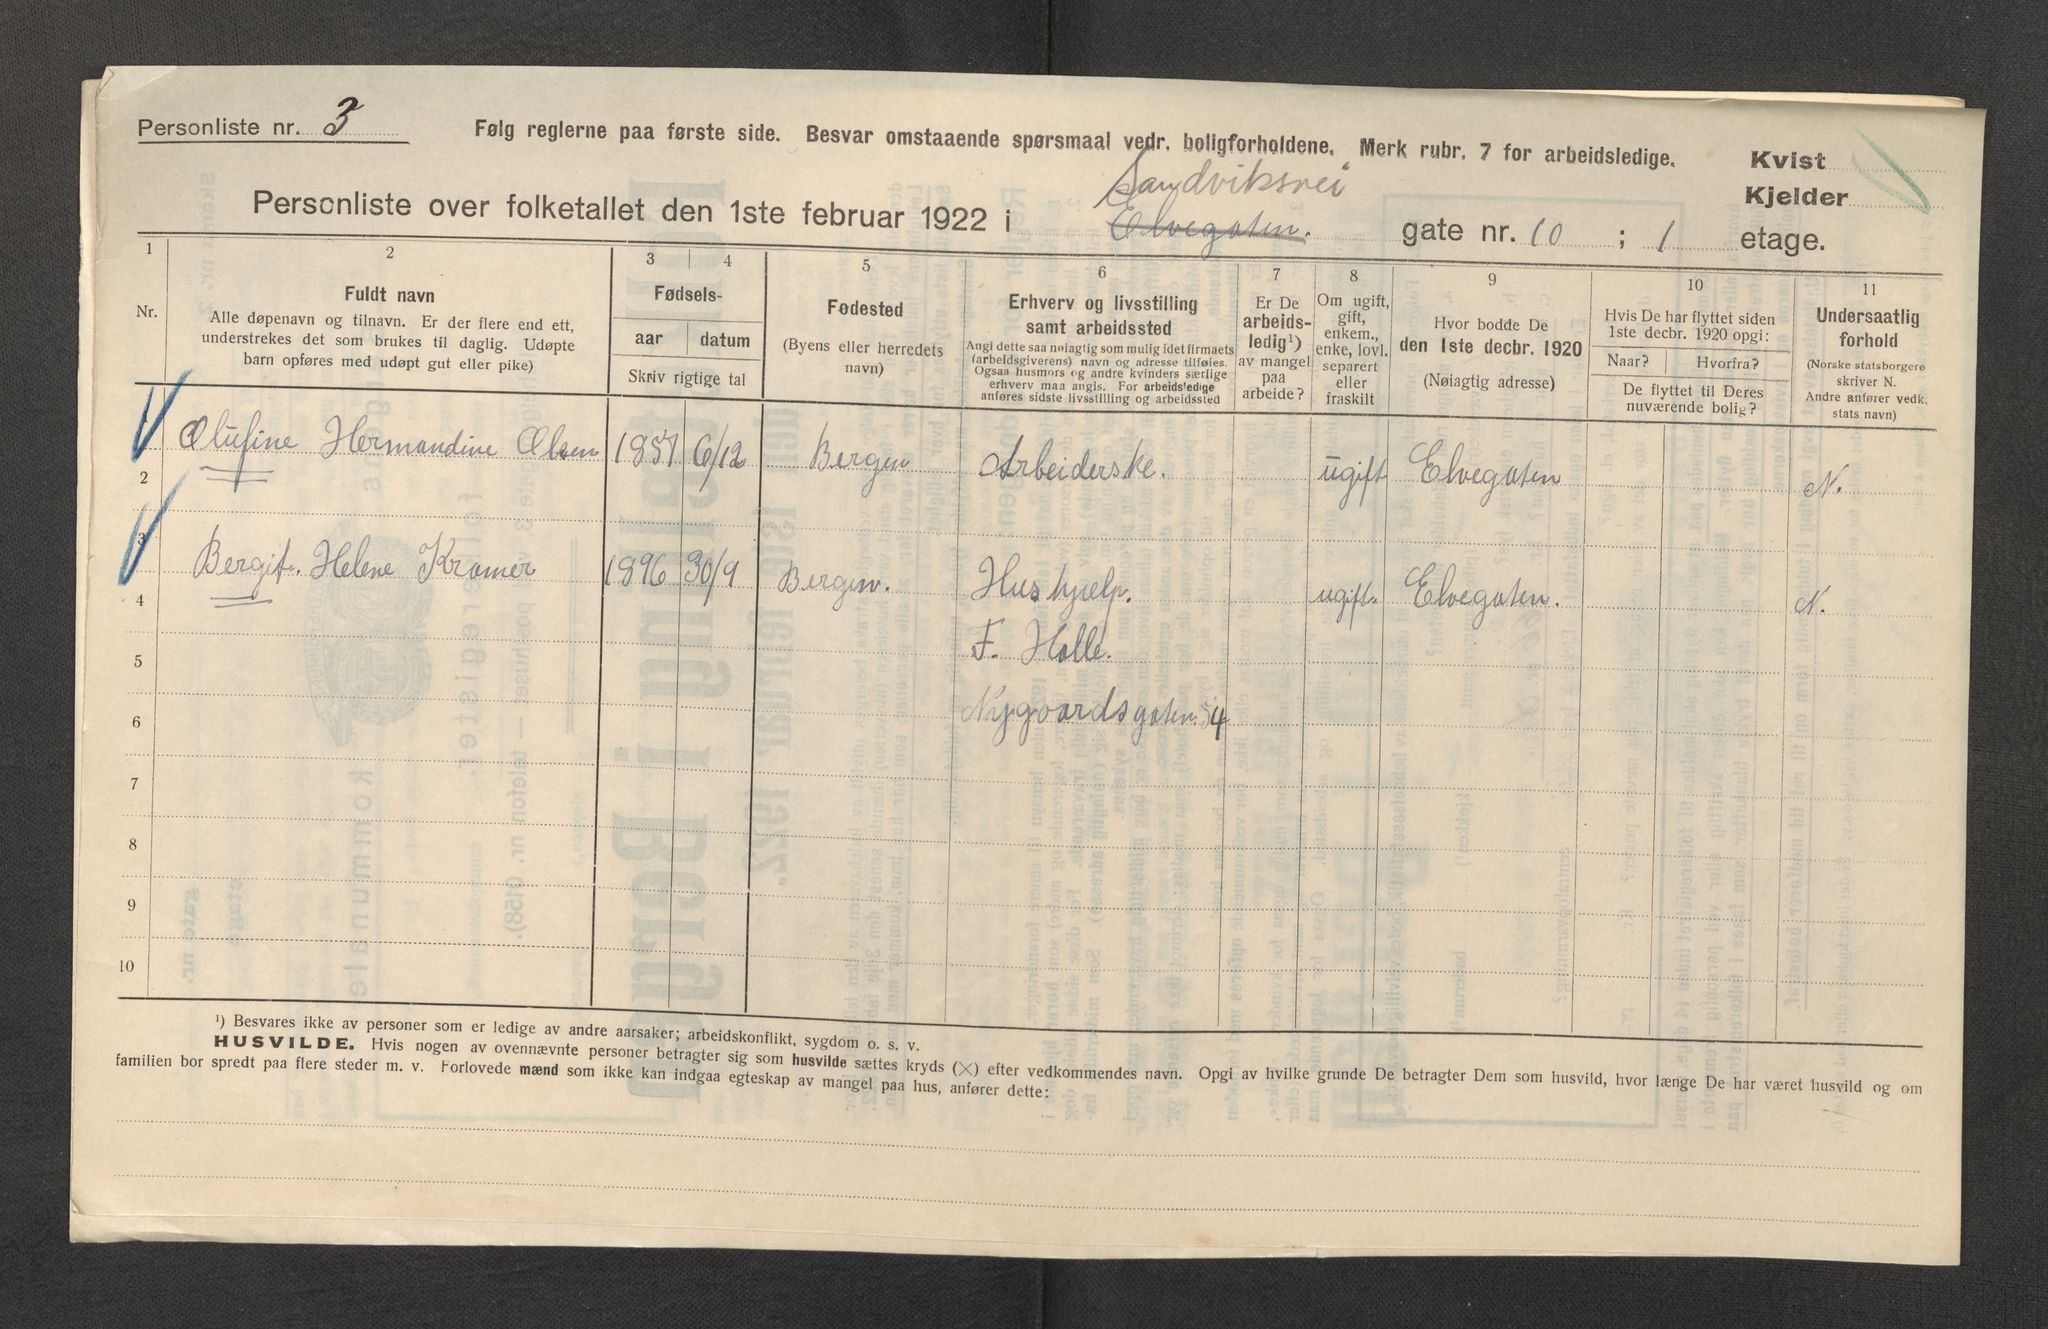 Personliste nr. 3
Følg reglerne paa første side. Besvar omstaaende spørsmaal vedr. boligforholdene. Merk rubr. 7 for arbeidsledige.
Kvist
Kjelder
Sandviksvei
Personliste over folketallet den 1ste februar 1922 i Elvegaten. gate nr. 10 ; 1 etage.
1 2 3 4 5 6 7 8 9 10 11
Nr.
Fuldt navn
Alle døpenavn og tilnavn. Er der flere end ett,
understrekes det som brukes til daglig. Udøpte
barn opføres med udøpt gut eller pike)
Fødsels-
aar datum
Skriv rigtige tal
Fødested
(Byens eller herredets
navn)
Erhverv og livsstilling
samt arbeidssted
Angi dette saa nøiagtig som mulig idet firmaets
(arbeidsgiverens) navn og adresse tilføies.
Ogsaa husmors og andre kvinders særlige
erhverv maa angis. For arbeidsledige
anføres sidste livsstilling og arbeidssted
Er De
arbeids-
ledig¹)
av mangel
paa
arbeide?
Om ugift,
gift,
enkem.,
enke, lovl.
separert
eller
fraskilt
Hvor bodde De
den 1ste decbr. 1920
(Nøiagtig adresse)
Hvis De har flyttet siden
1ste decbr. 1920 opgi:
Naar? Hvorfra?
De flyttet til Deres
nuværende bolig?
Undersaatlig
forhold
(Norske statsborgere
skriver N.
Andre anfører vedk.
stats navn)
1
Olufine Hermandine Olsen 1857 6/12 Bergen Arbeiderske. ugift Elvegaten N.
2
3
Bergit. Helene Kramer 1896 30/9 Bergen. Hushjelp. ugift. Elvegaten. N.
4
F. Halle.
5
Nygaardsgaten. 54
6
7
8
9
10
¹) Besvares ikke av personer som er ledige av andre aarsaker; arbeidskonflikt, sygdom o. s. v.
HUSVILDE. Hvis nogen av ovennævnte personer betragter sig som husvilde sættes kryds (×) efter vedkommendes navn. Opgi av hvilke grunde De betragter Dem som husvild, hvor længe De har været husvild og om
familien bor spredt paa flere steder m. v. Forlovede mænd som ikke kan indgaa egteskap av mangel paa hus, anfører dette: